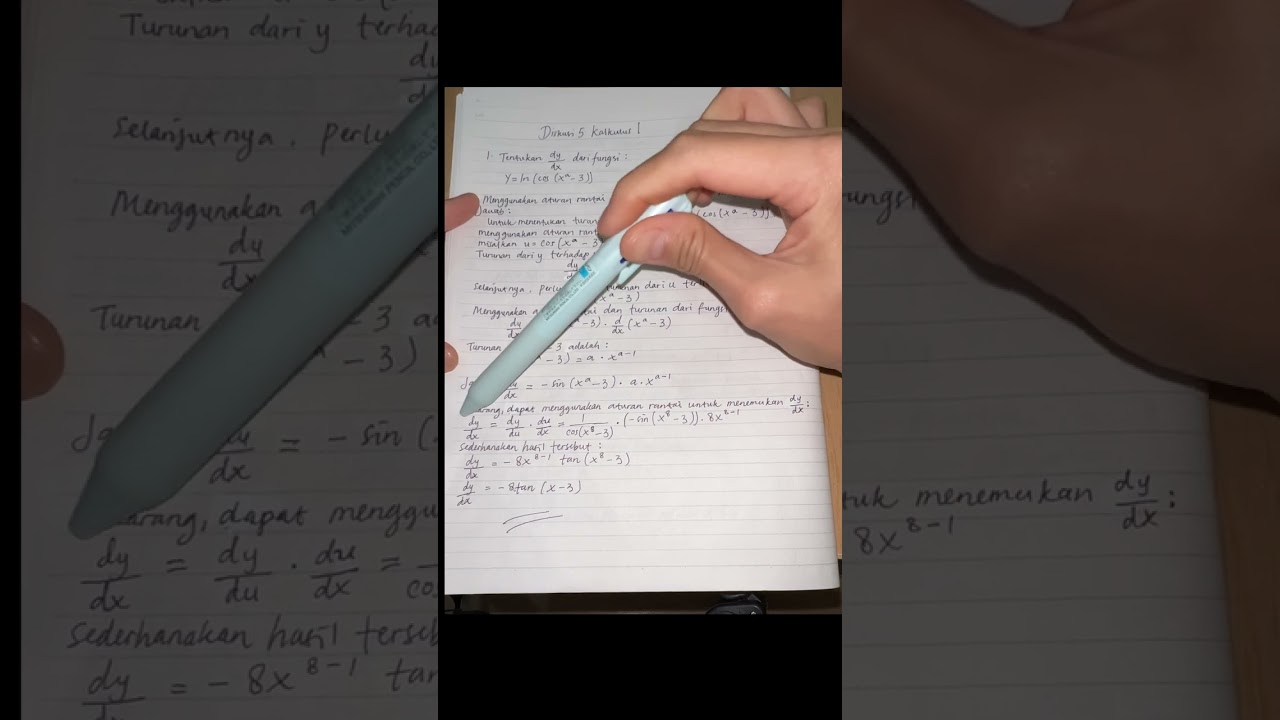 Diskusi 5 Kalkulus 1
1. Tentukan dy/dx dari fungsi:
Y = ln (cos (xᵃ - 3))
Menggunakan aturan rantai
Jawab: cos (xᵃ - 3))
Untuk menentukan turun
menggunakan aturan rant
misalkan u = cos (xᵃ - 3
Turunan dari y terhadap
dy
Selanjutnya, perlu dari u
xᵃ - 3)
Menggunakan a dan turunan dari fungs
dy/dx - 3) · d/dx (xᵃ - 3)
Turunan - 3 adalah:
- 3) = a · xᵃ⁻¹
Ja dy/dx = - sin (xᵃ - 3) · a · xᵃ⁻¹
arang, dapat menggunakan aturan rantai untuk menemukan dy/dx:
dy/dx = dy/du · du/dx = 1/cos(x⁸ - 3) · (- sin (x⁸ - 3)) · 8x⁸⁻¹
Sederhanakan hasil tersebut:
dy/dx = - 8x⁸⁻¹ tan (x⁸ - 3)
dy/dx = - 8 tan (x - 3)